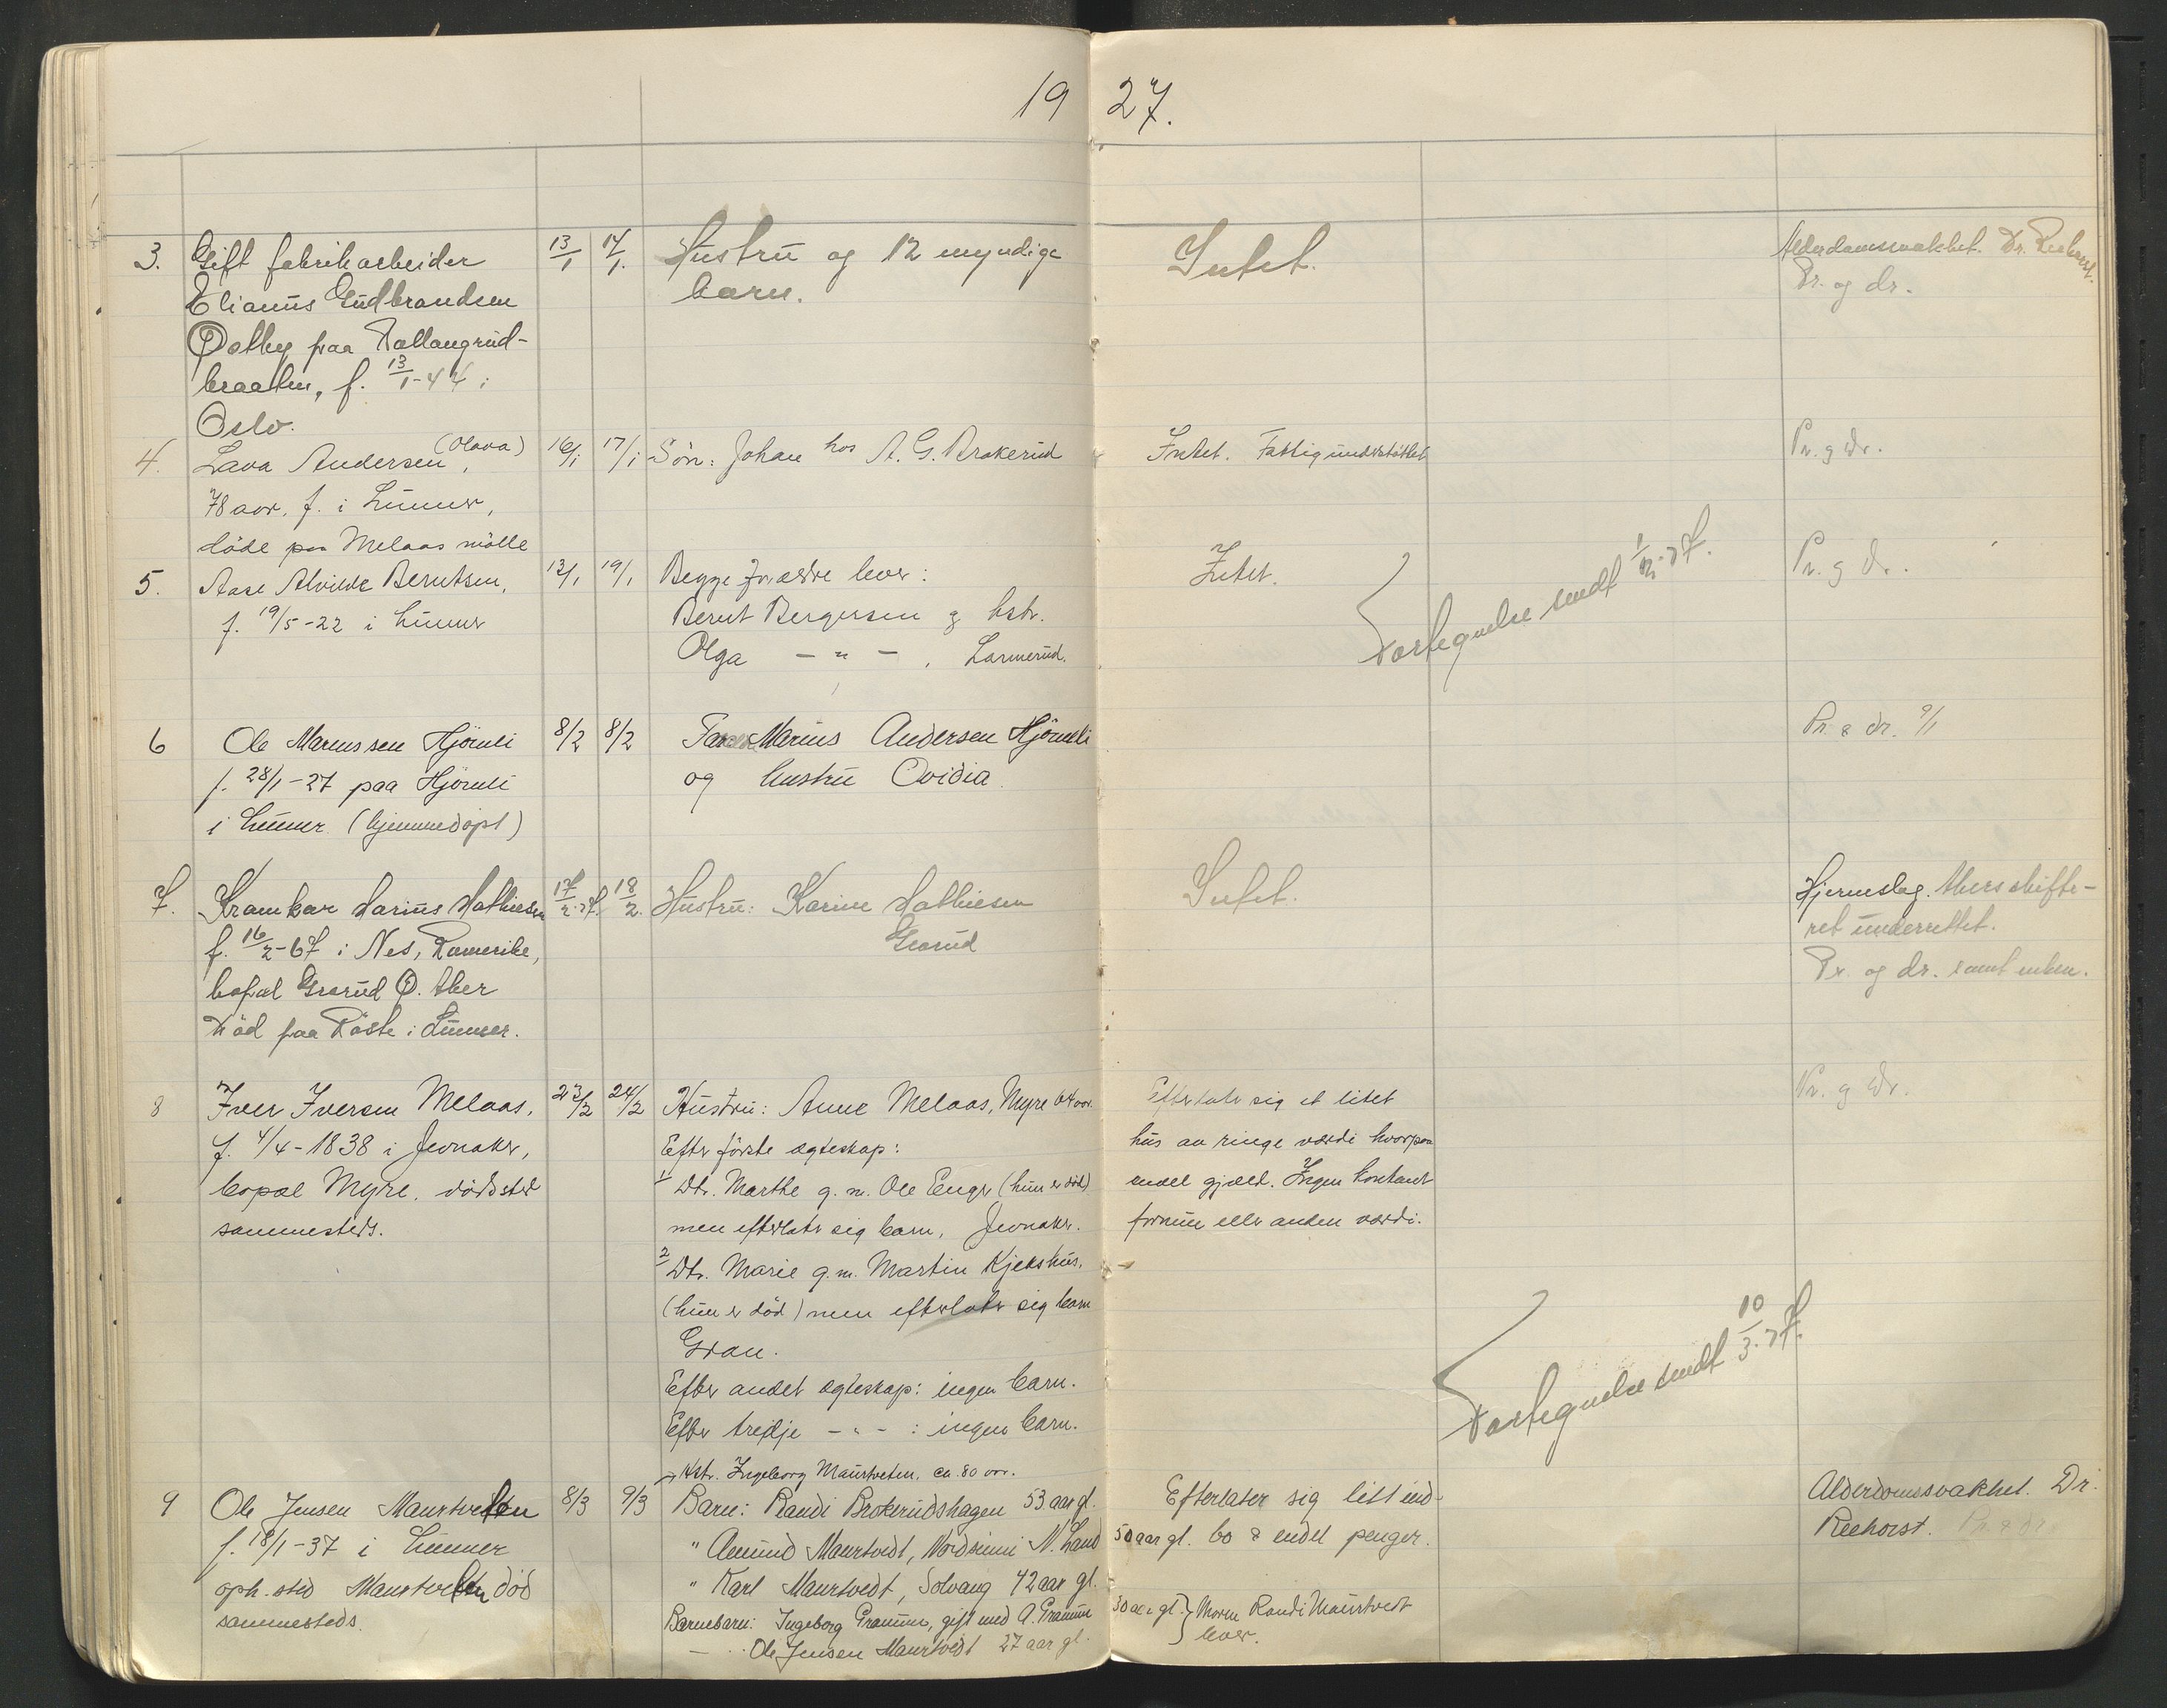 19 27.
3. Gift fabrikarbeider 13/1 14/1. Hustru og 12 myndige Intet. Alderdomssvakhet. Dr. Reehorst.
Elianus Gudbrandsen barn. Pr. og dr.
Østby paa
braaten, f. 13/1-44 i
Oslo.
4. Lava Andersen (Olava), 16/1 17/1 Sön: Johan hos A. G. Brokerud Intet. Fattigunderstöttet Pr. g dr.
78 aar, f. i Lunner,
döde paa Melaas mölle
5. Aase Alvilde Berntsen, 12/1 19/1 Begge forældre lever: Intet. Pr. g dr.
f. 19/5-22 i Lunner Bernt Bergersen g hstr.
Olga — " — , Larmerud.
Fortegnelse sendt 1/2-27.
6 Ole Mariussen Hjörnli 8/2 8/2 Far Marius Andersen Hjörnli Pr. & dr. 9/1
f. 28/1-27 paa Hjörnli og hustru Ovidia
i Lunner (hjemmedöpt)
7. Kramkar Marius Mathiesen 17/2.27. 18/2. Hustru: Karine Mathiesen Intet. Hjerneslag. Akers skifte-
f. 16/2-67 i Nes, Romerike, Grorud ret underrettet.
bopæl Grorud Ø. Aker Pr. og dr. samt enken.
Död paa Röste i Lunner.
8 Iver Iversen Melaas, 23/2 24/2 Hustru: Anne Melaas, Myre 64 aar. Efterlater sig et litet Pr. g dr.
f. 4/4-1838 i Jevnaker, Efter förste ægteskap: hus av ringe værdi hvorpaa
bopæl Myre, dödssted 1 Dtr. Marthe g. m. Ole Enger (hun er död) endel gjæld. Ingen kontant
sammesteds. men efterlater sig barn, Jevnaker. formue eller anden værdi.
2 Dtr. Marie g. m. Martin Kjekshus,
(hun er död) men efterlater sig barn
Gran.
Efter andet ægteskap: ingen barn.
Efter tredje - " - : ingen barn.
Fortegnelse sendt 10/3.27.
Hstr. Ingeborg Maurtveten, ca. 80 aar.
9 Ole Jensen Maurtveten 8/3 9/3 Barn: Randi Brokerudshagen 53 aar gl. Efterlater sig litt ind- Alderdomssvakhet. Dr.
f. 18/1-37 i Lunner " Amund Maurtvedt, Nordsinni N. Land 50 aar gl. bo & endel penger. Reehorst. Pr. & dr.
oph. sted Maurtveten död " Karl Maurtvedt, Solvang 42 aar gl.
sammesteds. Barnebarn: Ingeborg Granum, gift med A. Granum 30 aar gl. } Moren Randi Maurtvedt
— " Ole Jensen Maurtvedt 27 aar gl. lever.